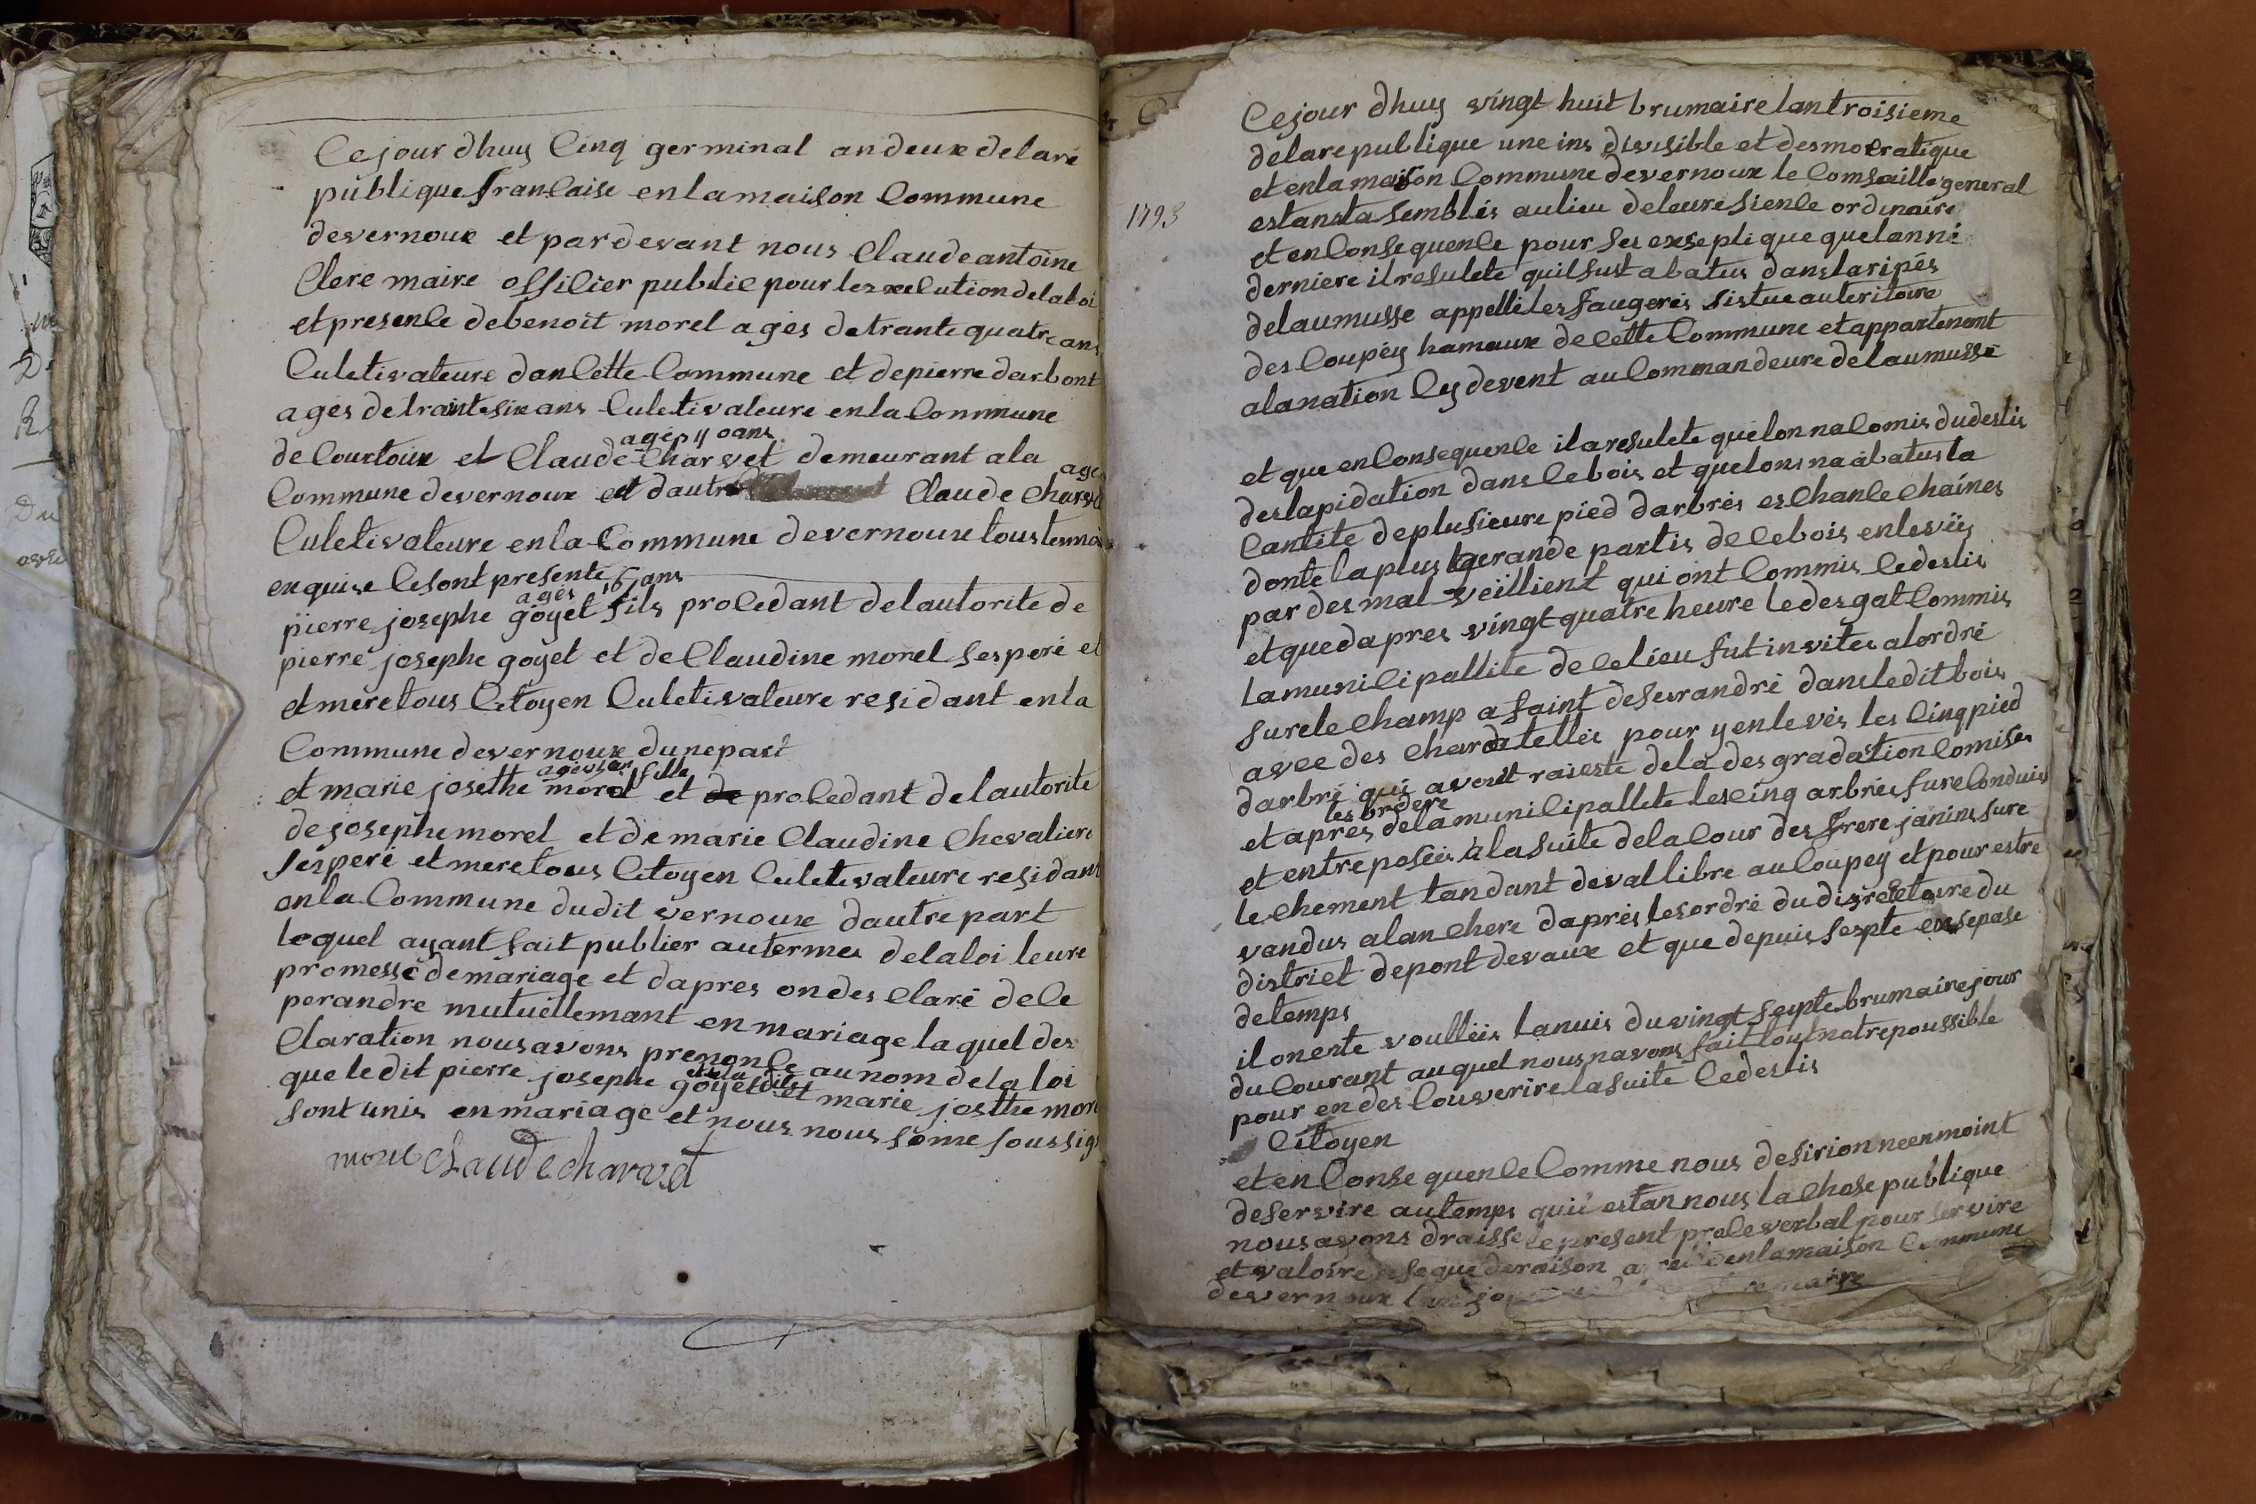 Cejour dhuy Cinq germinal an deux delaré
publique francaise en la maison Commune
devernoux et pardevant nous Claude antoine
Clere maire offilier publiic pour lexxelution delaloi
et presenle debenoit morel ages detrante quatre ans
Culetivateure danCette Commune et depierre darbont
ages detrantesix ans Culetivateure en la Commune
agép yoans
de Courtoux et Claude Charvet demeurant ala
age
Commune devernoux et dautre Claude Charvet
Culetivateure en la Commune devernoux tous temoi
en quise Cesont presenté
ages ans
pierre josephe goyet fils proledant delautorite de
pierre josephe goyet et de Claudine morel sesperé et
et mere tous Citoyen Culetivateure residant en la
Commune devernoux dunepart
fille
et marie josethe morel et de proledant delautorite
de josephe morel et de marie Claudine Chevaliere
sesperé et mere tous Citoyen Culetivateure residant
en la Commune dudit vernoux dautre part
lequel ayant fait publier autermes delaloi leure
promesse demariage et dapres ondes Claré dele
perandre mutuellemant en mariage laquel des
Claration nousavons prenonle au nom delaloi
que ledit pierre josephe goyet fils et marie josthe more
sont unis en mariage et nous nous some soussig
morel Claude charvet
1793
Cejour dhuy vingt huit brumaire lantroisieme
delarepublique une ins divisible et desmocratique
et en la maison Commune devernoux le Comsaille general
estansta semblés aulieu deleure sienle ordinaire
et en Consequenle pour ses exsepti que quelanné
derniere il resulete quil fust abatus danslaripés
delaumusse appelleles faugerés sistue auteritoire
des Coupéy hameaux de Cette Commune et appartenont
alanation Cy devent au Commandeure delaumusse
et que en Consequenle ilaresulete quelon na Comis dudeslis
deslapidation dans lebois et quelons na abatus la
Cantite deplusieure pied darbrés es Chanle Chaines
donte la plus gerande partis de lebois enlevéy
par des mal veillient qui ont Commis ledeslis
et quedapres vingt quatre heure ledesgat Commis
lamunilipallite de Celieu fut invites alordré
surele Champ afaint deserandré dansledit bois
avec des Charatellés pour y enlevés les Cinq pied
darbré qui avoit raiesté dela desgradastion Comises
les ordere
et apres delamunilipallete lesCinq arbrés fure Conduis
et entreposées à la suite dela Cour des frere janins sure
le Chement tandant deval libre au Coupey et pour estre
vandus alanchere daprés lesordré du disrectoire du
distriet depont devaux et que depuis sespte exsepase
detemps
il oneste voullées lanuis duvingt septe brumaire jour
du Courant auquel nousnavons fait tout notre poussible
pour endes Couverire lasuite Cedeslis
Citoyen
et en Conse quenle Comme nous desirion neenmoint
deservire autemps quii estan nous la Chose publique
nousavons draisse le present proleverbal pour servire
et valoire seque deraison a en la maison Commune
devernoux maire